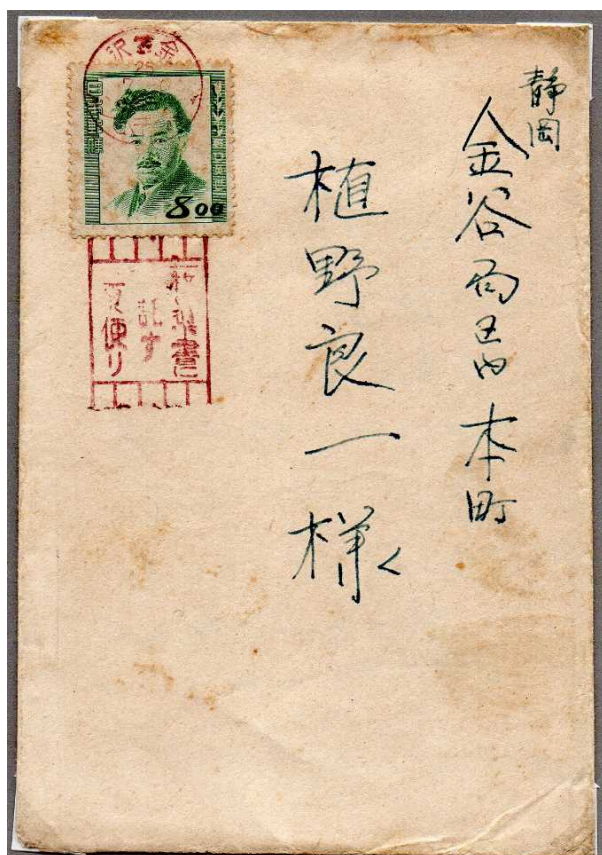 静岡
金谷局区内本町
植野良一様
8 00
託す
便り